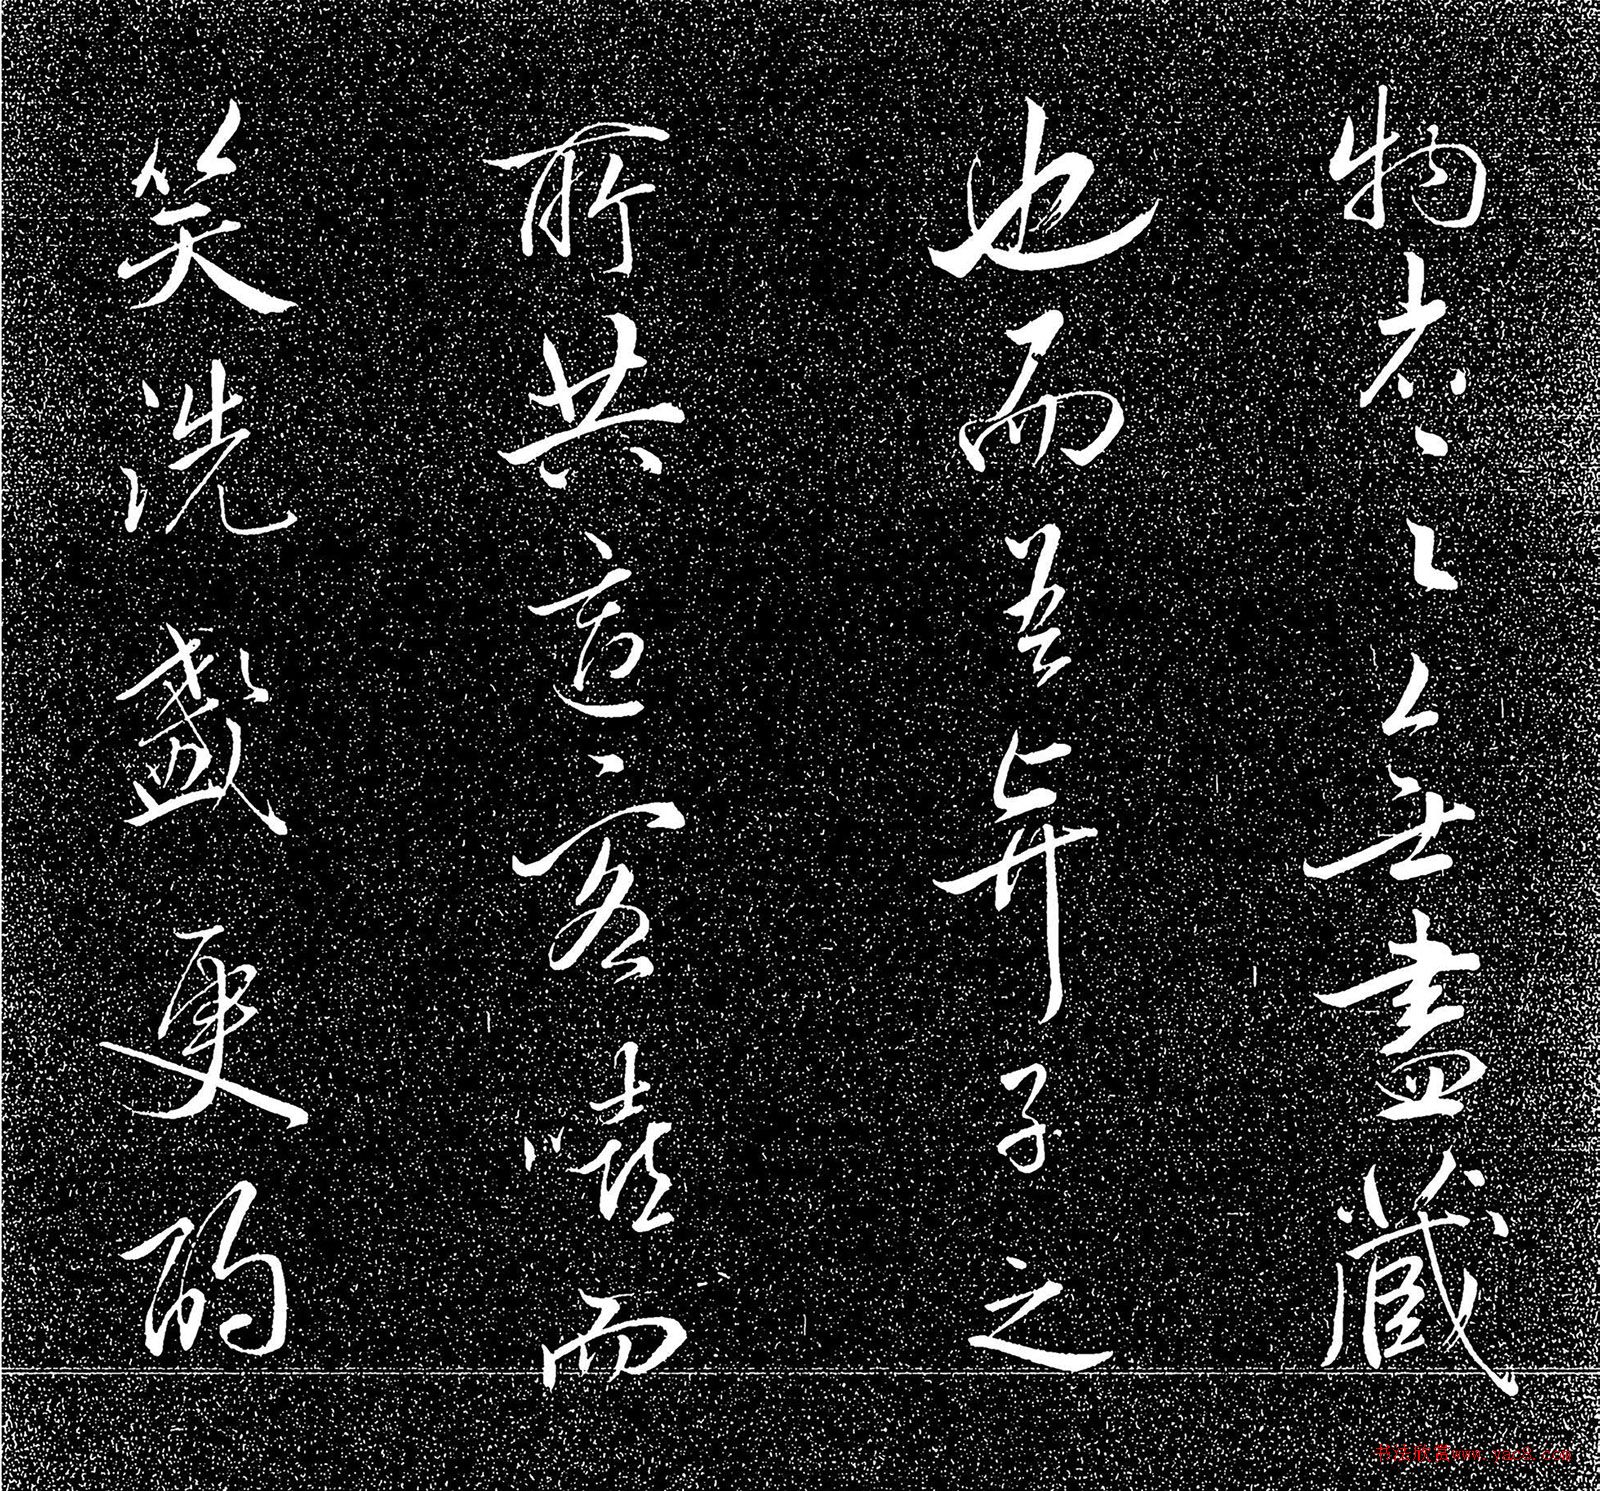 物者之無盡藏
也而吾與子之
所共適客嘻而
笑洗盞更酌
书法欣赏www.yac8.com